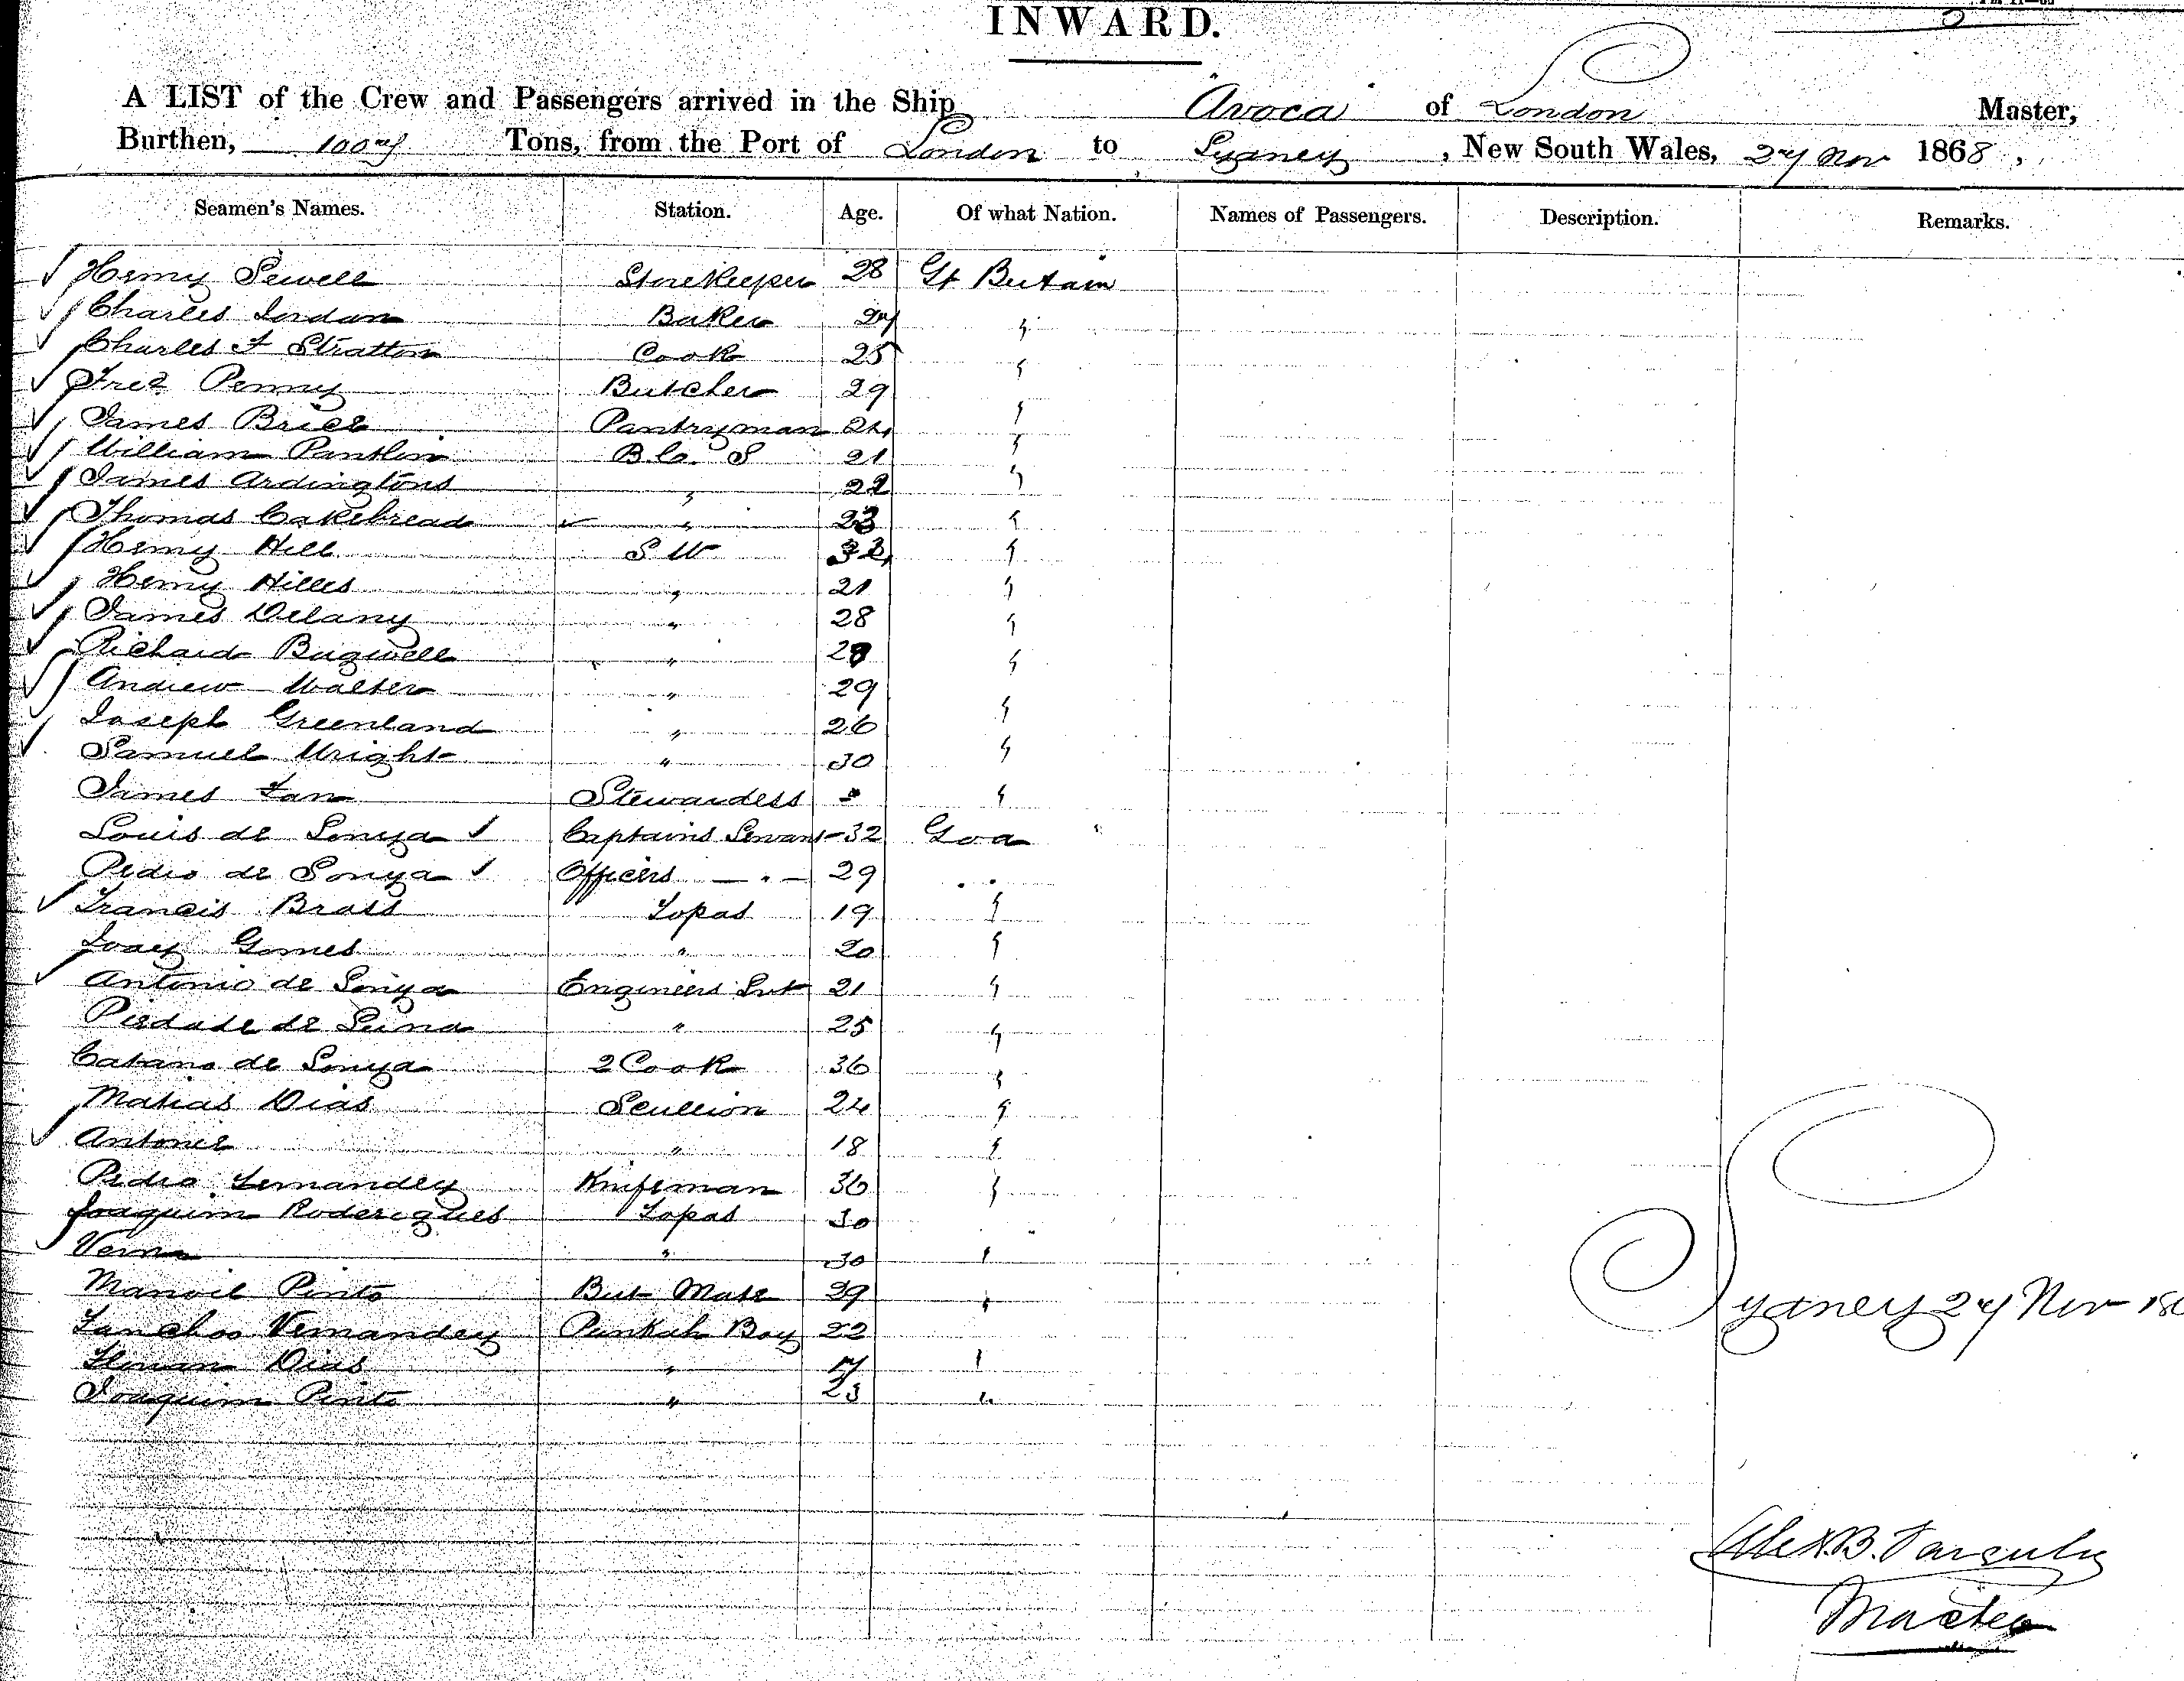 INWARD.
A LIST of the Crew and Passengers arrived in the Ship Avoca of London Master,
Burthen, 1007 Tons, from the Port of London to Sydney, New South Wales, 27 Nov 1868,
Seamen's Names. Station. Age. Of what Nation. Names of Passengers. Description. Remarks.
Henry Sewell Storekeeper 28 Gt Britain
Charles Jordan Baker 27 "
Charles F Stratton Cook 25 "
Fred Penny Butcher 29 "
James Brice Pantryman 24 "
William Pantlin B. Co. S 21 "
James Ardingtons " 22 "
Thomas Cakebread " 23 "
Henry Hill S W 32 "
Henry Hilles " 21 "
James Delany " 28 "
Richard Bagwell " 28 "
Andrew Walter " 29 "
Joseph Greenland " 26 "
Samuel Wright " 30 "
James Fan Stewardess "
Louis de Souza Captains Servant 32 Goa
Pedro de Souza Officers — " — 29 "
Francis Brass Topas 19 "
Joay Gomes " 20 "
Antonio de Souza Engineers Svt 21 "
Piedade de " 25 "
Catano de Souza 2 Cook 36 "
Matias Dias Scullion 24 "
Antone " 18 "
Pedro Fernandez Knifeman 36 "
Joaquim Roderigues Topas 30
" 30 "
Manoel Pinto But Mate 39 "
Sanchoo Vernandez Punkah Boy 22
Dias " 17 "
Joaquim Pinto " 23 "
Sydney 27 Nov 186
Alex. B. Farquhar
Master